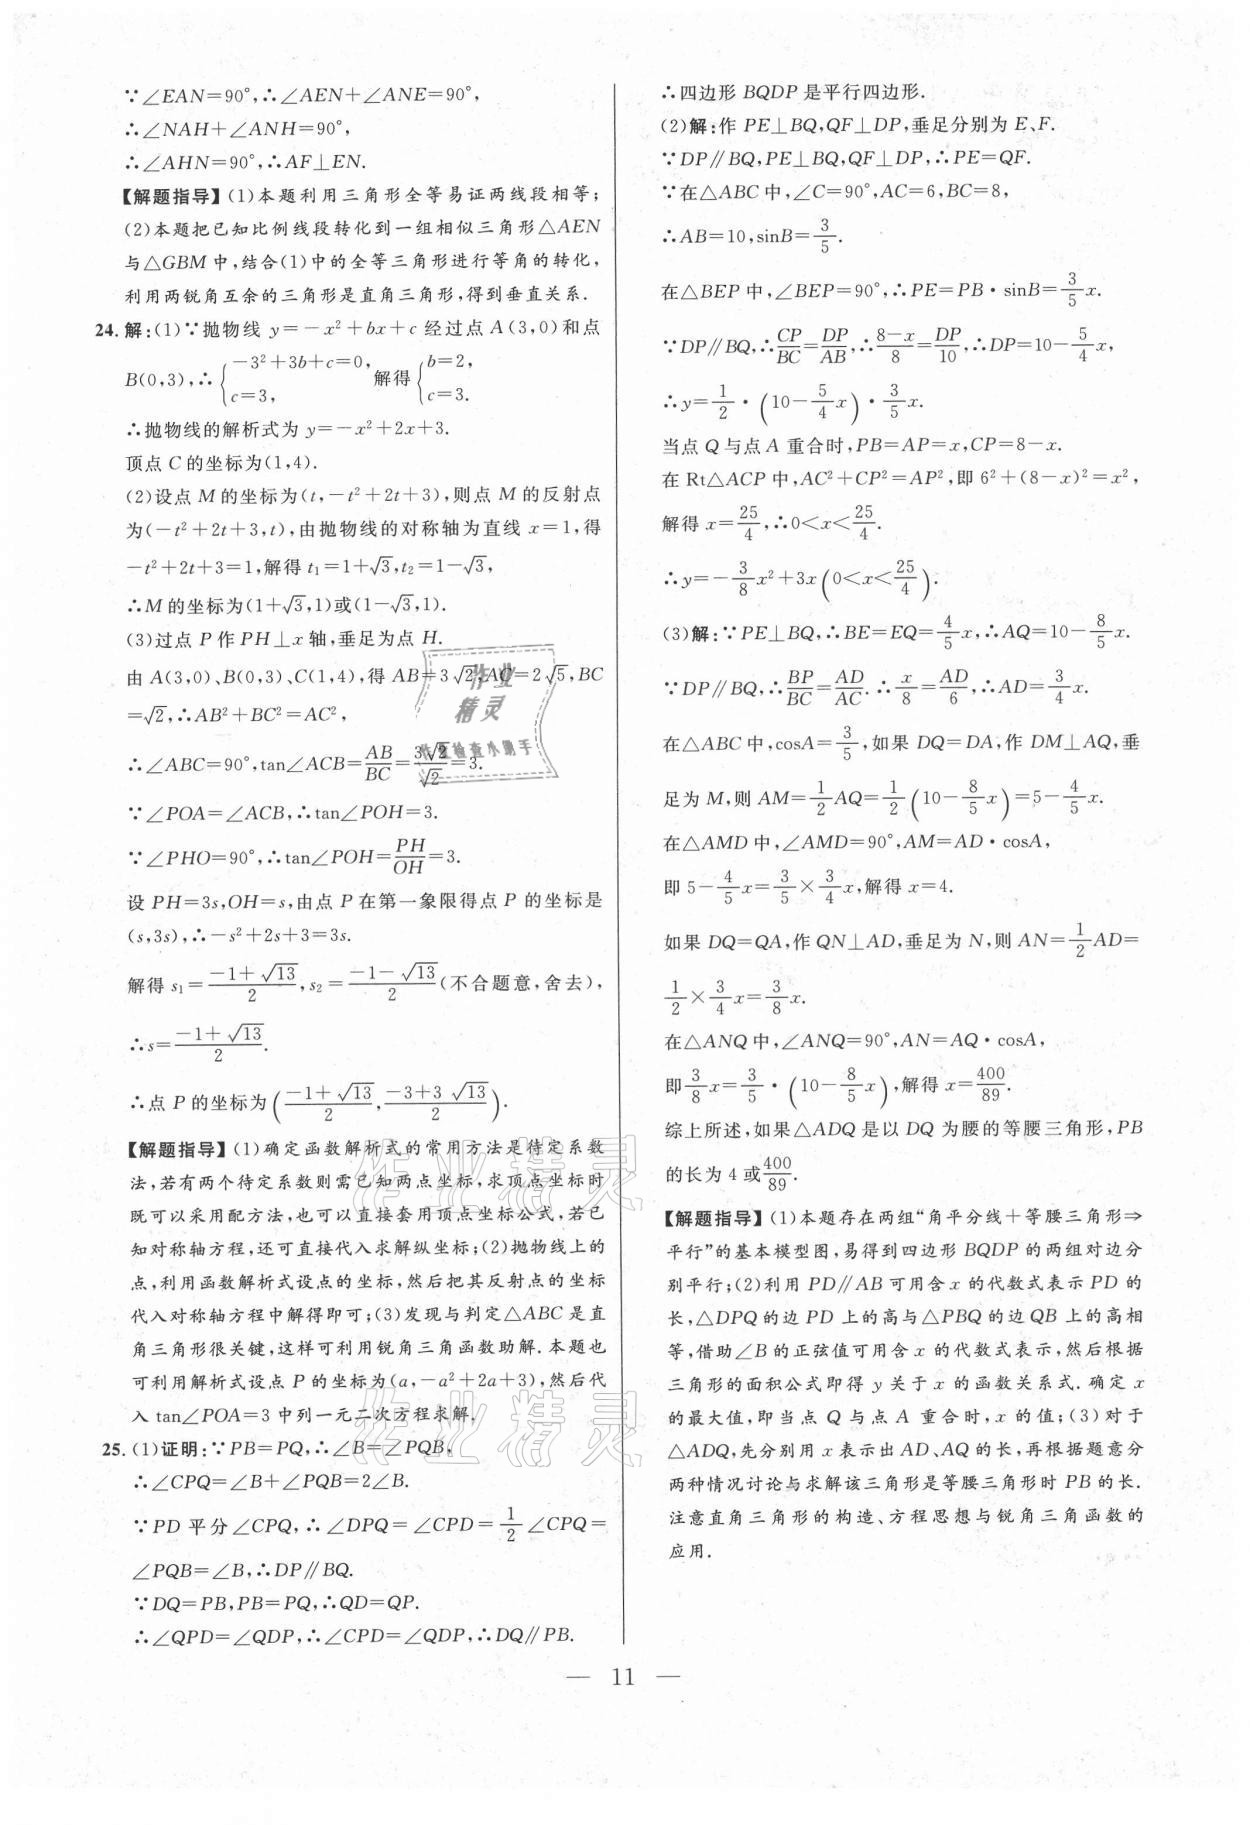 ∵∠EAN=90°,∴∠AEN+∠ANE=90°,
∴∠NAH+∠ANH=90°,
∴∠AHN=90°,∴AF⊥EN.
【解题指导】(1)本题利用三角形全等易证两线段相等;
(2)本题把已知比例线段转化到一组相似三角形△AEN
与△GBM中,结合(1)中的全等三角形进行等角的转化,
利用两锐角互余的三角形是直角三角形,得到垂直关系.
24. 解:(1)∵抛物线 y=-x²+bx+c 经过点 A(3,0)和点
B(0,3),∴{-3²+3b+c=0, c=3, 解得{b=2, c=3.
∴抛物线的解析式为 y=-x²+2x+3.
顶点 C 的坐标为(1,4).
(2)设点 M 的坐标为(t,-t²+2t+3),则点 M 的反射点
为(-t²+2t+3,t),由抛物线的对称轴为直线 x=1,得
-t²+2t+3=1,解得 t₁=1+√3,t₂=1-√3,
∴M 的坐标为(1+√3,1)或(1-√3,1).
(3)过点 P 作 PH⊥x 轴,垂足为点 H.
由 A(3,0)、B(0,3)、C(1,4),得 AB=3√2,AC=2√5,BC
=√2,∴AB²+BC²=AC²,
∴∠ABC=90°,tan∠ACB=AB/BC=3√2/√2=3.
∵∠POA=∠ACB,∴tan∠POH=3.
∵∠PHO=90°,∴tan∠POH=PH/OH=3.
设 PH=3s,OH=s,由点 P 在第一象限得点 P 的坐标是
(s,3s),∴-s²+2s+3=3s.
解得 s₁=(-1+√13)/2,s₂=(-1-√13)/2(不合题意,舍去),
∴s=(-1+√13)/2.
∴点 P 的坐标为((-1+√13)/2,(-3+3√13)/2).
【解题指导】(1)确定函数解析式的常用方法是待定系数
法,若有两个待定系数则需已知两点坐标,求顶点坐标时
既可以采用配方法,也可以直接套用顶点坐标公式,若已
知对称轴方程,还可直接代入求解纵坐标;(2)抛物线上的
点,利用函数解析式设点的坐标,然后把其反射点的坐标
代入对称轴方程中解得即可;(3)发现与判定△ABC 是直
角三角形很关键,这样可利用锐角三角函数助解.本题也
可利用解析式设点 P 的坐标为(a,-a²+2a+3),然后代
入 tan∠POA=3 中列一元二次方程求解.
25. (1)证明:∵PB=PQ,∴∠B=∠PQB,
∴∠CPQ=∠B+∠PQB=2∠B.
∵PD 平分∠CPQ,∴∠DPQ=∠CPD=1/2∠CPQ=
∠PQB=∠B,∴DP∥BQ.
∵DQ=PB,PB=PQ,∴QD=QP.
∴∠QPD=∠QDP,∴∠CPD=∠QDP,∴DQ∥PB.
∴四边形 BQDP 是平行四边形.
(2)解:作 PE⊥BQ,QF⊥DP,垂足分别为 E、F.
∵DP∥BQ,PE⊥BQ,QF⊥DP,∴PE=QF.
∵在△ABC 中,∠C=90°,AC=6,BC=8,
∴AB=10,sinB=3/5.
在△BEP 中,∠BEP=90°,∴PE=PB·sinB=3/5x.
∵DP∥BQ,∴CP/BC=DP/AB,∴(8-x)/8=DP/10,∴DP=10-5/4x,
∴y=1/2·(10-5/4x)·3/5x.
当点 Q 与点 A 重合时,PB=AP=x,CP=8-x.
在 Rt△ACP 中,AC²+CP²=AP²,即 6²+(8-x)²=x²,
解得 x=25/4,∴0<x<25/4.
∴y=-3/8x²+3x(0<x<25/4).
(3)解:∵PE⊥BQ,∴BE=EQ=4/5x,∴AQ=10-8/5x.
∵DP∥BQ,∴BP/BC=AD/AC.∴x/8=AD/6,∴AD=3/4x.
在△ABC 中,cosA=3/5,如果 DQ=DA,作 DM⊥AQ,垂
足为 M,则 AM=1/2AQ=1/2(10-8/5x)=5-4/5x.
在△AMD 中,∠AMD=90°,AM=AD·cosA,
即 5-4/5x=3/5×3/4x,解得 x=4.
如果 DQ=QA,作 QN⊥AD,垂足为 N,则 AN=1/2AD=
1/2×3/4x=3/8x.
在△ANQ 中,∠ANQ=90°,AN=AQ·cosA,
即3/8x=3/5·(10-8/5x),解得 x=400/89.
综上所述,如果△ADQ 是以 DQ 为腰的等腰三角形,PB
的长为 4 或400/89.
【解题指导】(1)本题存在两组“角平分线+等腰三角形⇒
平行”的基本模型图,易得到四边形 BQDP 的两组对边分
别平行;(2)利用 PD∥AB 可用含 x 的代数式表示 PD 的
长,△DPQ 的边 PD 上的高与△PBQ 的边 QB 上的高相
等,借助∠B 的正弦值可用含 x 的代数式表示,然后根据
三角形的面积公式即得 y 关于 x 的函数关系式.确定 x
的最大值,即当点 Q 与点 A 重合时,x 的值;(3)对于
△ADQ,先分别用 x 表示出 AD、AQ 的长,再根据题意分
两种情况讨论与求解该三角形是等腰三角形时 PB 的长.
注意直角三角形的构造、方程思想与锐角三角函数的
应用.
— 11 —
作业
精灵
作业检查小助手
作业精灵
作业精灵